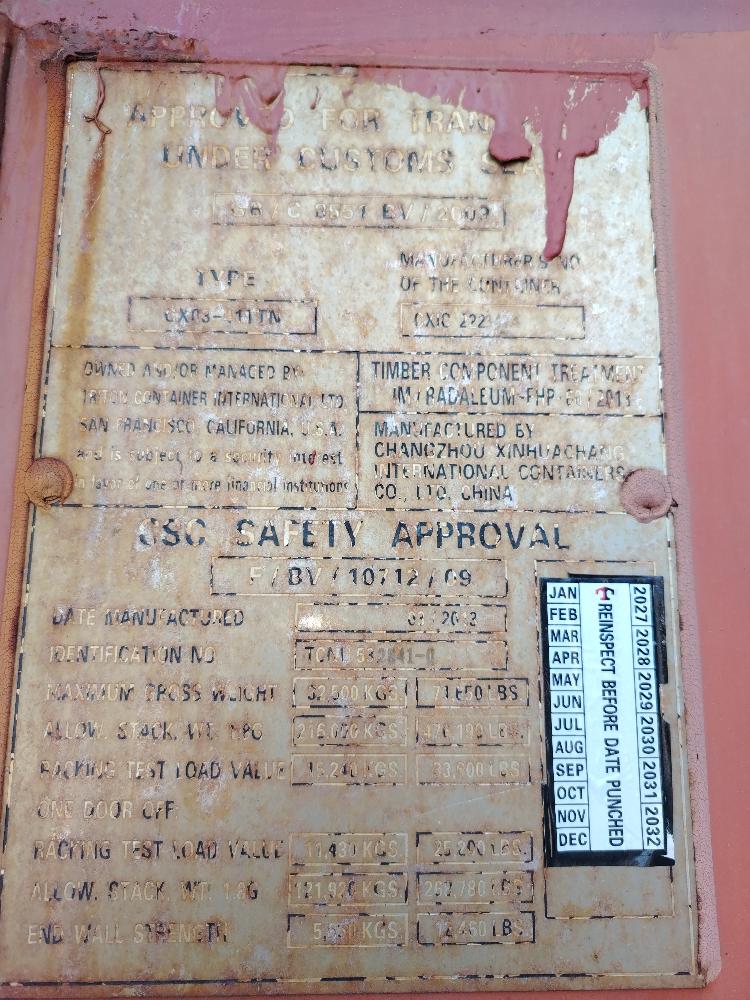 APPROVED FOR TRAN
UNDER CUSTOMS SEA
GB / C 8551 BV / 2009
TYPE
MANUFACTURER'S NO.
OF THE CONTAINER
OWNED AND/OR MANAGED BY
TRITON CONTAINER INTERNATIONAL LTD.
SAN FRANCISCO, CALIFORNIA, U.S.A.
and is subject to a security interest
in favor of one or more financial institutions
TIMBER COMPONENT TREATMENT
IM / RADALEUM-FHP-60 / 2013
MANUFACTURED BY
CHANGZHOU XINHUACHANG
INTERNATIONAL CONTAINERS
CO., LTD. CHINA
CSC SAFETY APPROVAL
F / BV / 10712 / 09
DATE MANUFACTURED
IDENTIFICATION NO
MAXIMUM GROSS WEIGHT 32,500 KGS 71,650 LBS
ALLOW. STACK. WT. 1.8G 216,000 KGS 476,190 LBS
RACKING TEST LOAD VALUE 15,240 KGS 33,600 LBS
ONE DOOR OFF
RACKING TEST LOAD VALUE 11,430 KGS 25,200 LBS
ALLOW. STACK. WT. 1.8G 121,920 KGS
END WALL STRENGTH KGS LBS
JAN
FEB
MAR
APR
MAY
JUN
JUL
AUG
SEP
OCT
NOV
DEC
REINSPECT BEFORE DATE PUNCHED
2027 2028 2029 2030 2031 2032